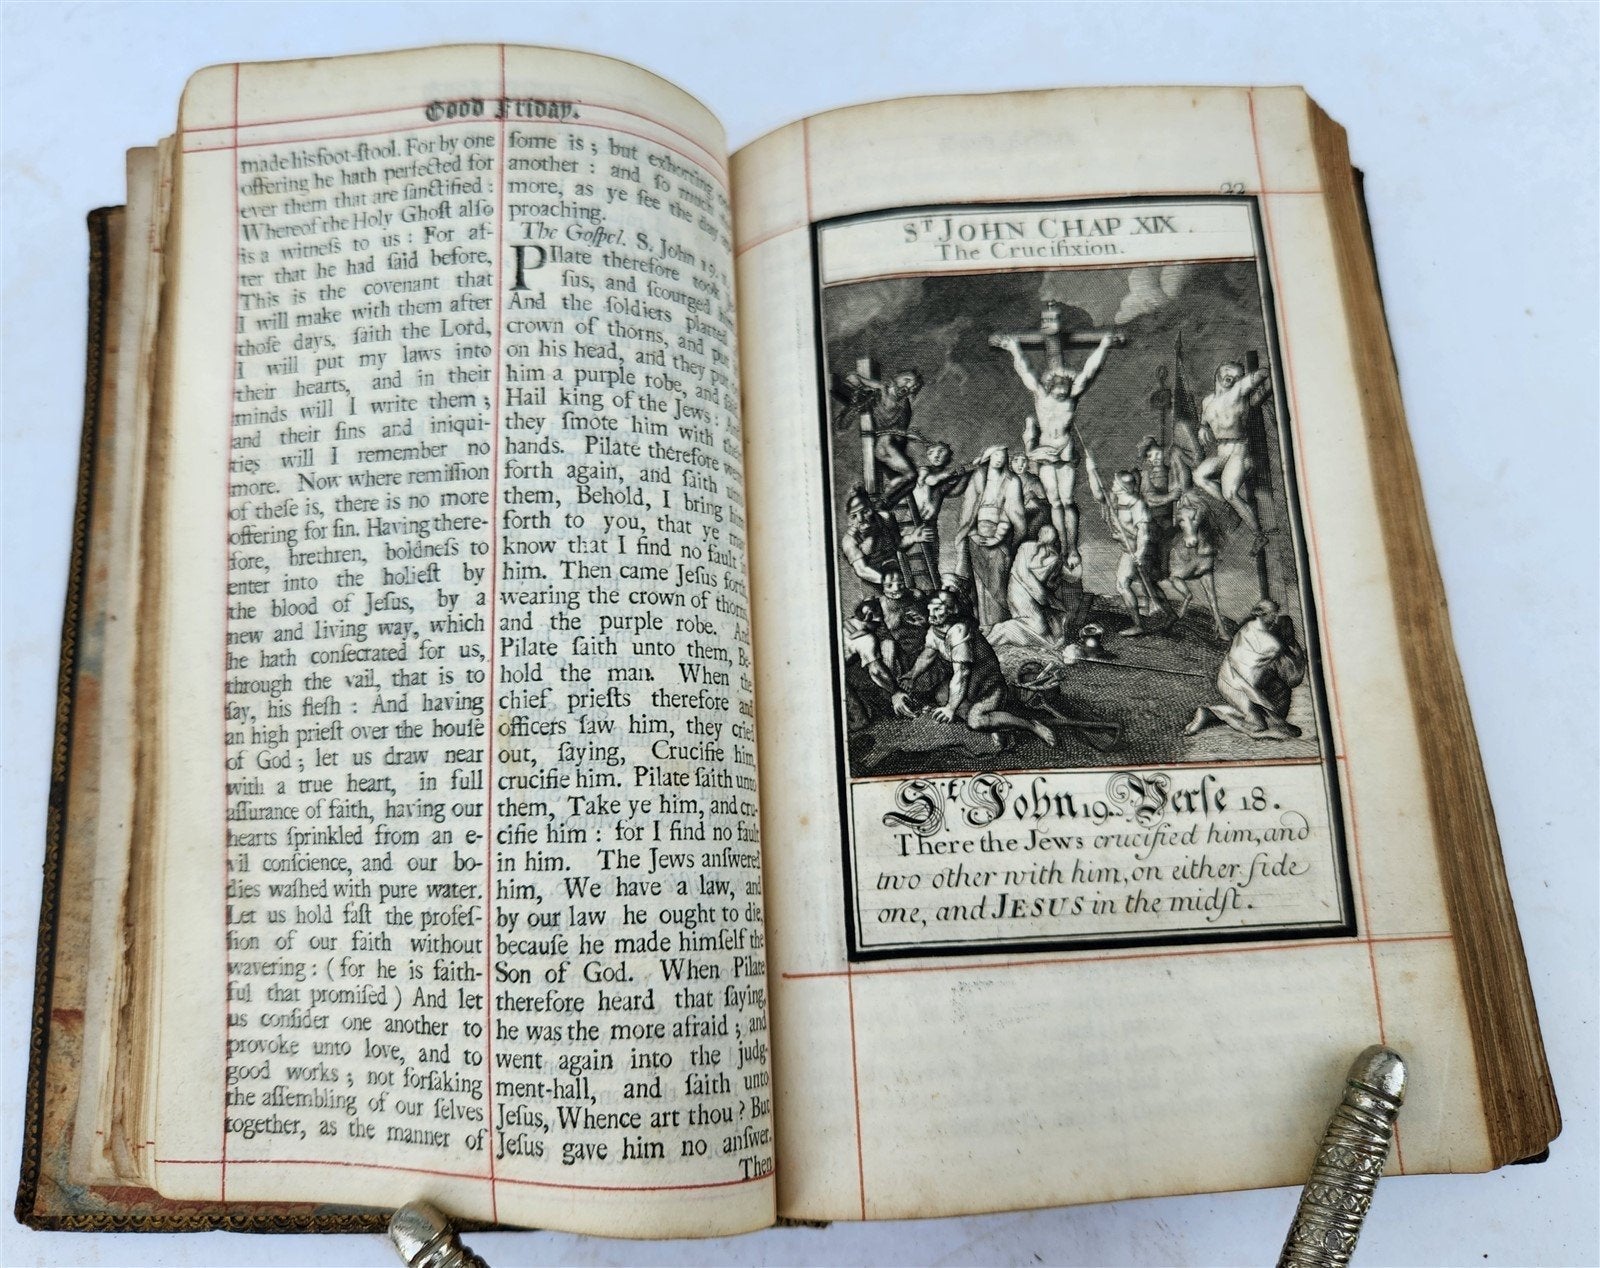 Good Friday.
made his foot-ſtool. For by one
offering he hath perfected for
ever them that are ſanctified :
Whereof the Holy Ghoſt alſo
is a witneſs to us : For af-
ter that he had ſaid before,
This is the covenant that
I will make with them after
thoſe days, ſaith the Lord,
I will put my laws into
their hearts, and in their
minds will I write them ;
and their ſins and iniqui-
ties will I remember no
more. Now where remiſſion
of theſe is, there is no more
offering for ſin. Having there-
fore, brethren, boldneſs to
enter into the holieſt by
the blood of Jeſus, by a
new and living way, which
he hath conſecrated for us,
through the vail, that is to
ſay, his fleſh : And having
an high prieſt over the houſe
of God ; let us draw near
with a true heart, in full
aſſurance of faith, having our
hearts ſprinkled from an e-
vil conſcience, and our bo-
dies waſhed with pure water.
Let us hold faſt the profeſ-
ſion of our faith without
wavering : ( for he is faith-
ful that promiſed ) And let
us conſider one another to
provoke unto love, and to
good works ; not forſaking
the aſſembling of our ſelves
together, as the manner of
ſome is ; but exhorting
another : and ſo much
more, as ye ſee the day
proaching.
The Goſpel. S. John 19.
PIlate therefore took
ſus, and ſcourged him
And the ſoldiers platted
crown of thorns, and put
on his head, and they put
him a purple robe, and
Hail king of the Jews :
they ſmote him with
hands. Pilate therefore went
forth again, and ſaith unto
them, Behold, I bring him
forth to you, that ye may
know that I find no fault in
him. Then came Jeſus forth
wearing the crown of thorns,
and the purple robe. And
Pilate ſaith unto them, Be-
hold the man. When the
chief prieſts therefore and
officers ſaw him, they cried
out, ſaying, Crucifie him,
crucifie him. Pilate ſaith unto
them, Take ye him, and cru-
cifie him : for I find no fault
in him. The Jews anſwered
him, We have a law, and
by our law he ought to die,
becauſe he made himſelf the
Son of God. When Pilate
therefore heard that ſaying,
he was the more afraid ; and
went again into the judg-
ment-hall, and ſaith unto
Jeſus, Whence art thou ? But
Jeſus gave him no anſwer.
Then
22
ST JOHN CHAP. XIX.
The Crucifixion.
St. John 19. Verſe 18.
There the Jews crucified him, and
two other with him, on either ſide
one, and JESUS in the midſt.